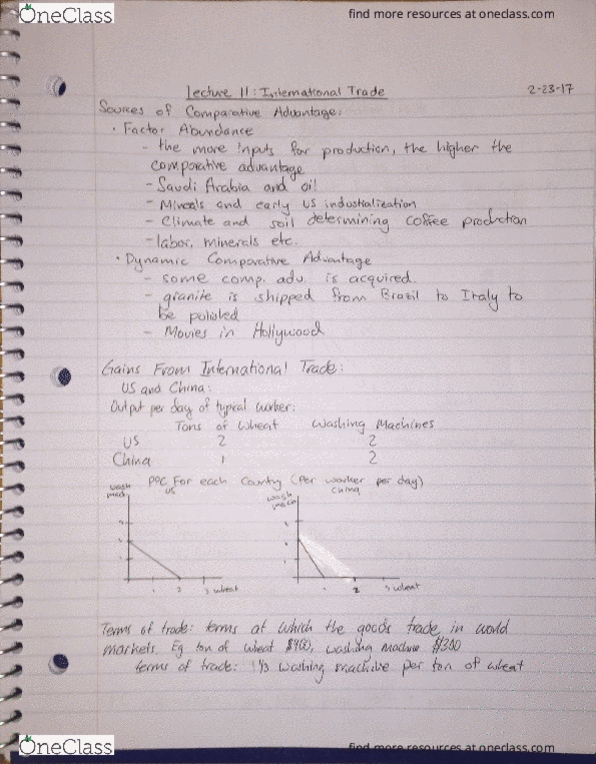 OneClass
find more resources at oneclass.com
Lecture 11: International Trade
2-23-17
Sources of Comparative Advantage:
· Factor Abundance
- the more inputs for production, the higher the
comparative advantage
- Saudi Arabia and oil
- Minerals and early US industrialization
- Climate and soil determining coffee production
- labor, minerals etc.
· Dynamic Comparative Advantage
- some comp. adv. is acquired.
- granite is shipped from Brazil to Italy to
be polished
- Movies in Hollywood
Gains From International Trade:
US and China:
Output per day of typical worker:
Tons of Wheat Washing Machines
US 2 2
China 1 2
PPC For each Country (Per worker per day)
US China
wash
wash
2 3 wheat
1 2 3 wheat
Terms of trade: terms at which the goods trade in world
markets. Eg ton of wheat $400, washing machine $300
terms of trade: 1 1/3 washing machine per ton of wheat
OneClass
find more resources at oneclass.com